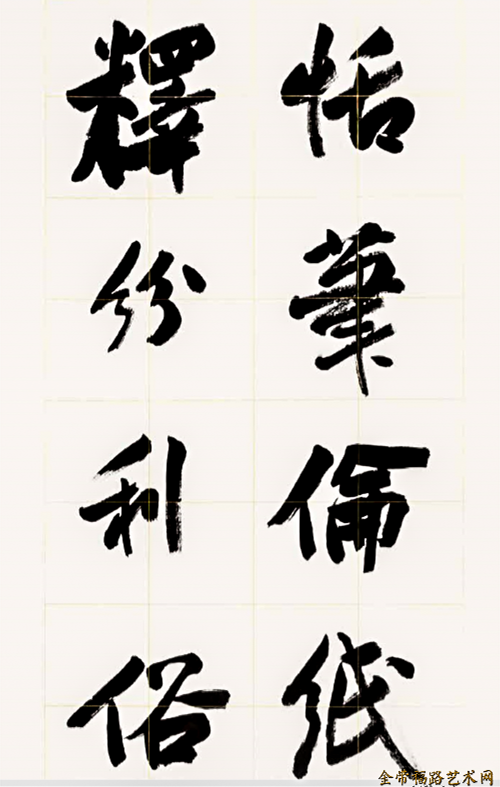 恬筆倫紙
釋紛利俗
金帝福路艺术网